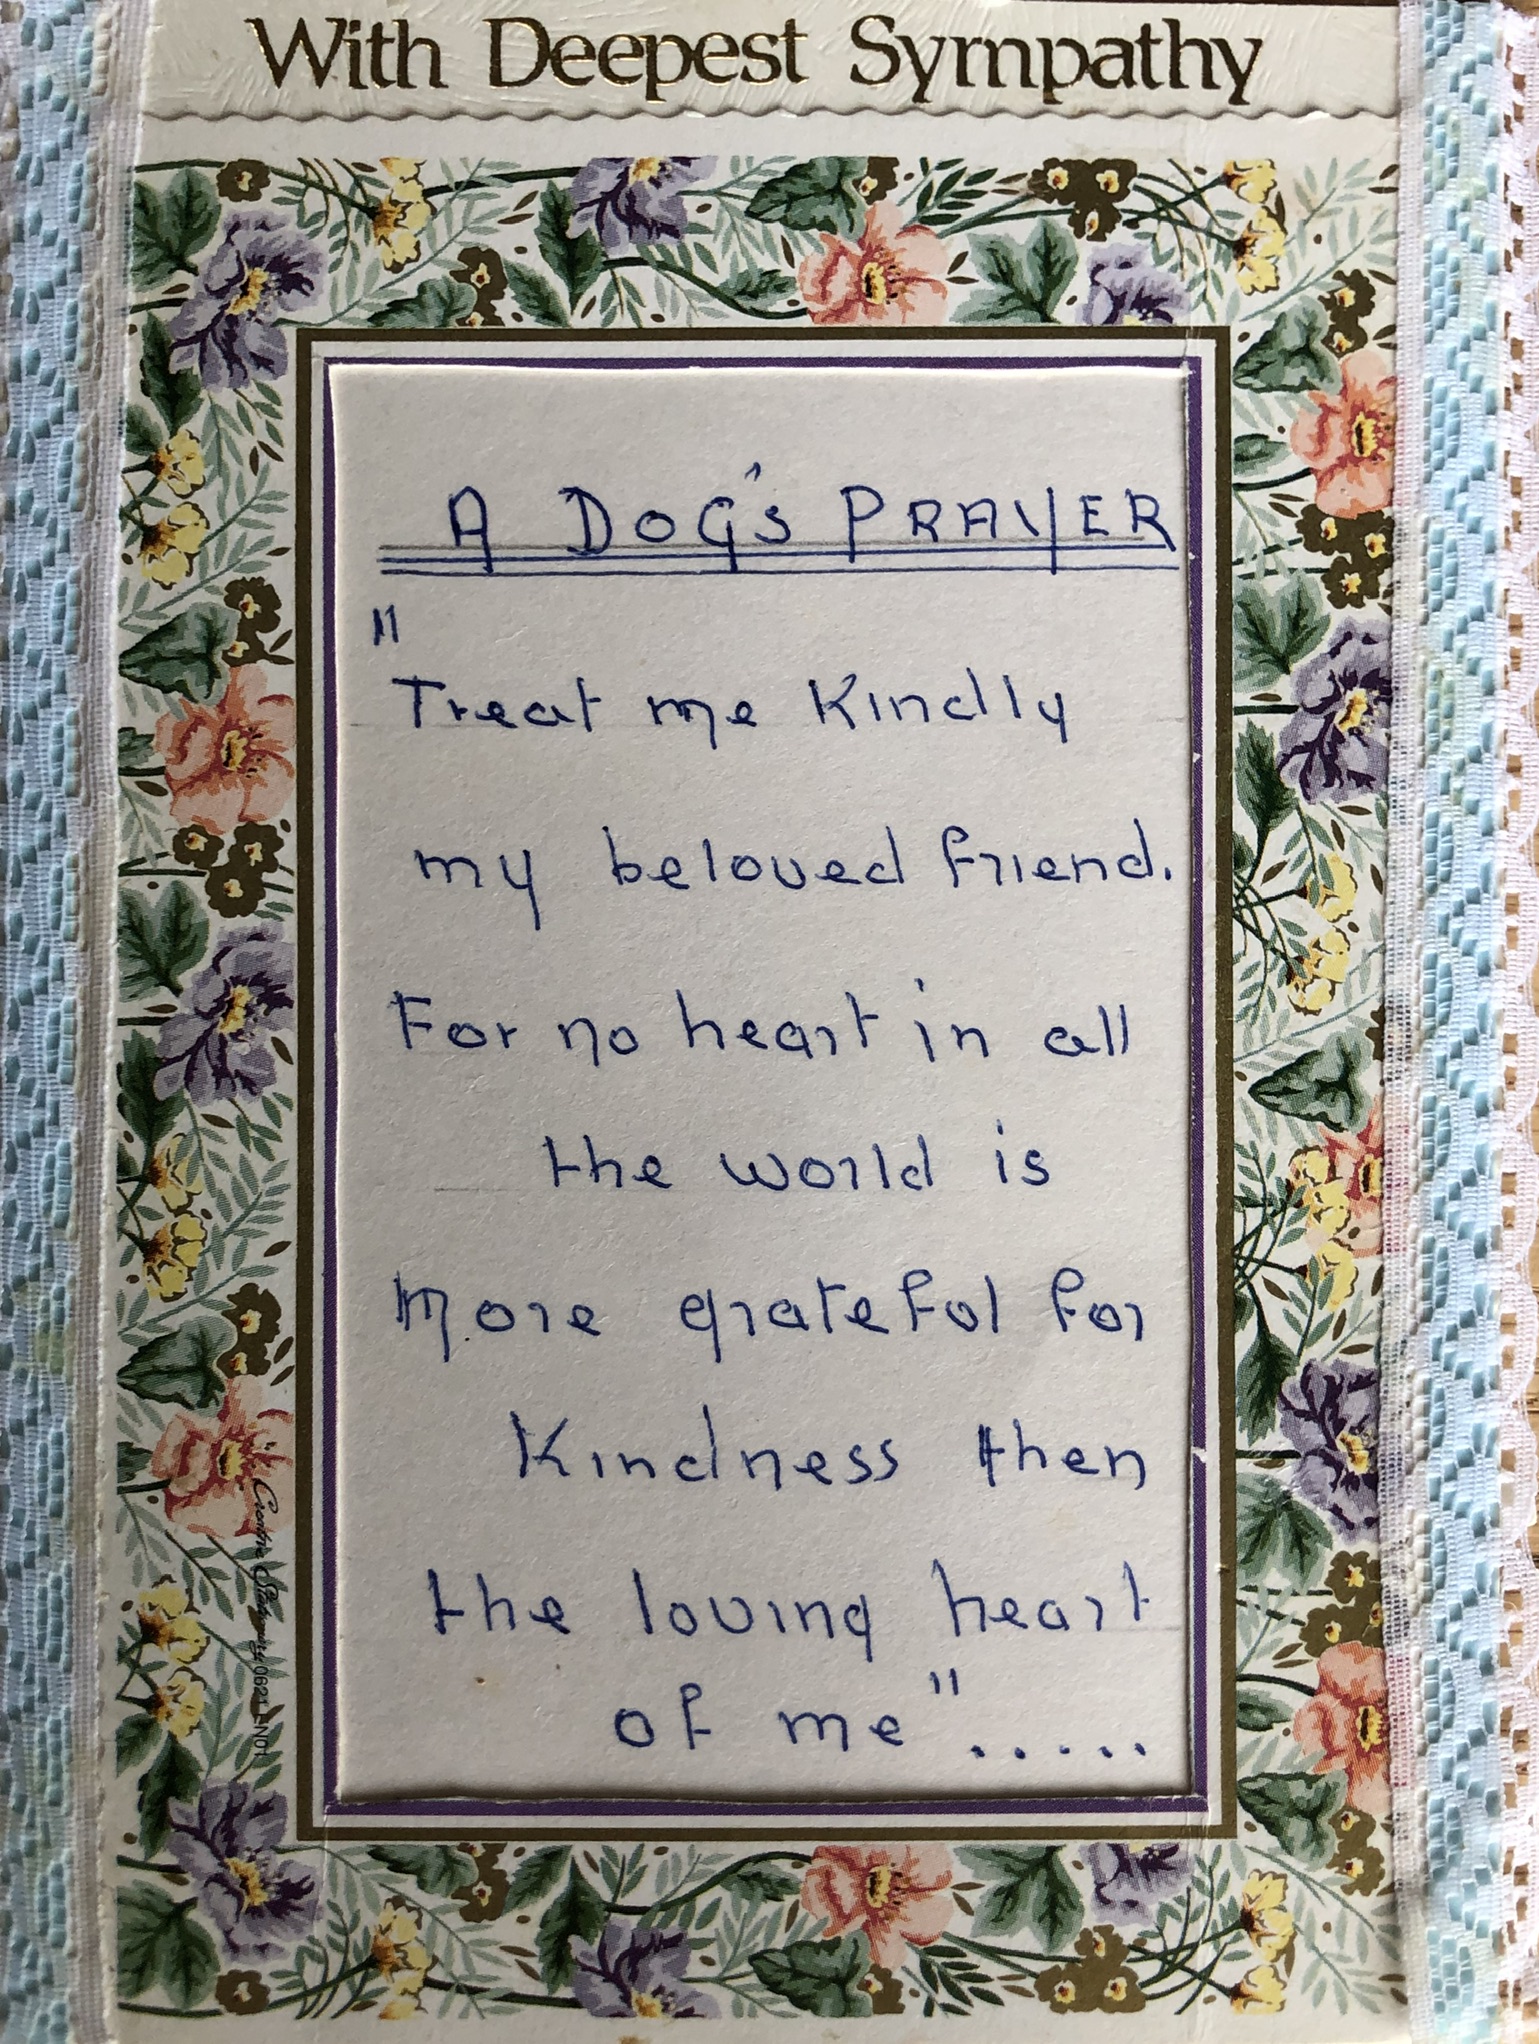 With Deepest Sympathy
A DOG'S PRAYER
"
Treat me Kindly
my beloved friend.
For no heart in all
the world is
More grateful for
Kindness then
the loving heart
of me".....
0621 EN01